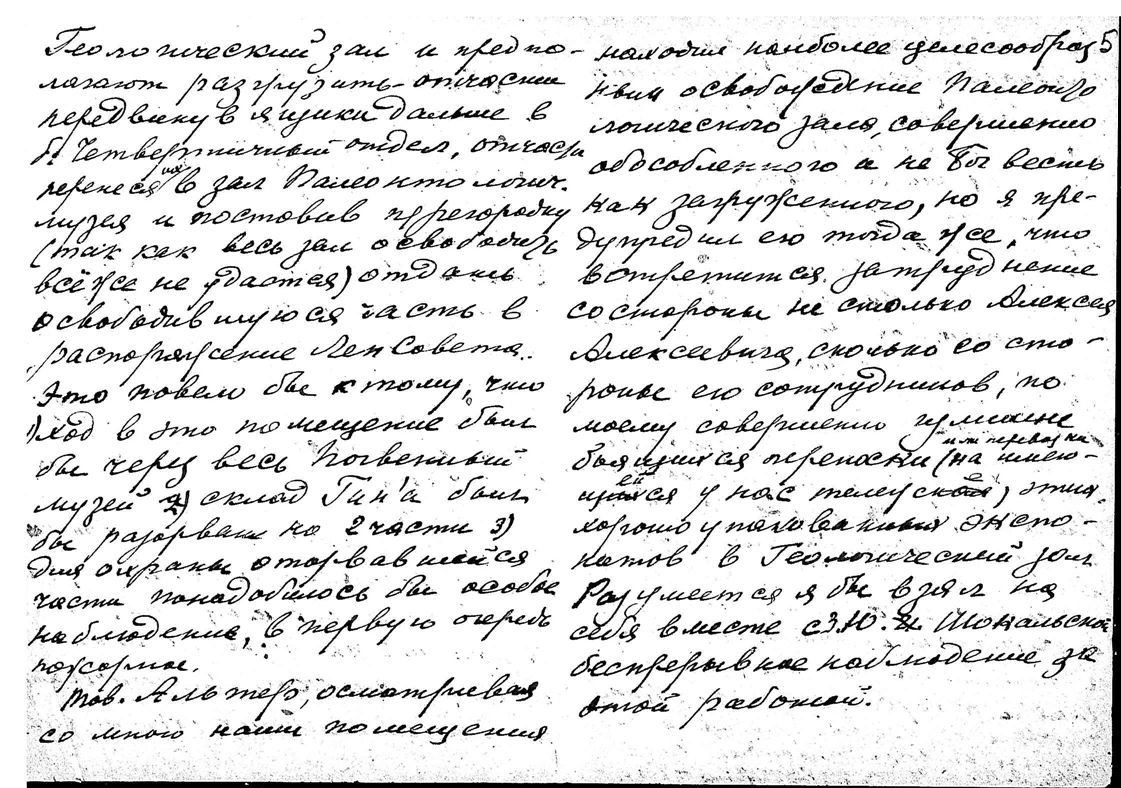 Геологический зал и предпо-
лагают разгрузить - отчасти
передвинув ящики дальше в
б. Четвертичный отдел, отчасти
перенеся их в зал Палеонтологич.
музея и поставив перегородку
(так как весь зал освободить
всё же не удастся) отдать
освободившуюся часть в
распоряжение ЛенСовета.
Это повело бы к тому, что
1) ход в это помещение был
бы через весь Почвенный
музей 2) склад Гин'а был
бы разорван на 2 части 3)
для охраны оторвавшейся
части понадобилось бы особое
наблюдение, в первую очередь
пожарное.
Тов. Альтер, осматривая
со мною наши помещения
находил наиболее целесообраз 5
ным освобождение Палеонто
логического зала, совершенно
обособленного и не Бог весть
как загруженного, но я пре-
дупредил его тогда же, что
встретится затруднение
со стороны не столько Алексея
Алексеевича, сколько со сто-
роны его сотрудников, по
моему совершенно излишне
боящихся переноски (или перевозки на имею-
щейся у нас тележке) этих
хорошо упакованных экспо-
натов в Геологический зал
Разумеется я бы взял на
себя вместе с З.Ю. Шокальской
беспрерывное наблюдение за
этой работой.